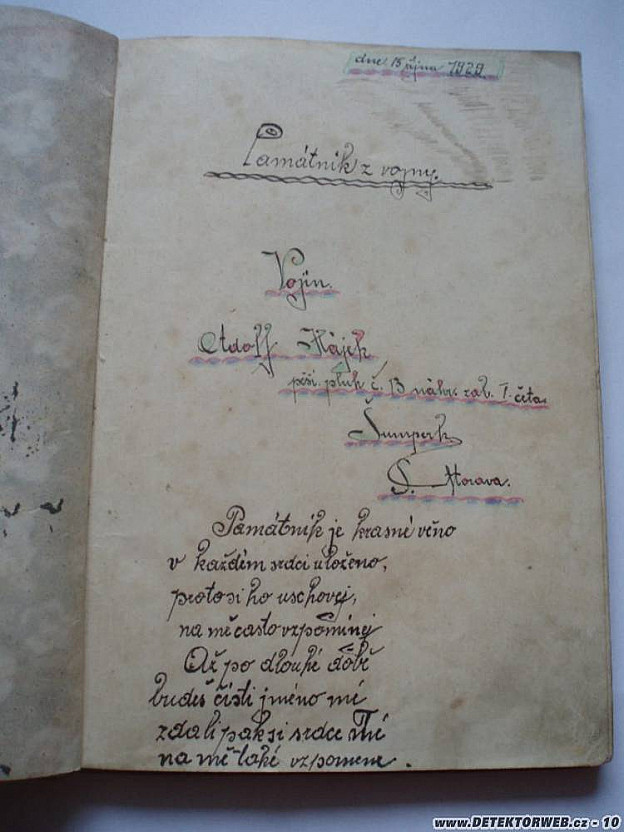 dne 15 října 1929
Památnik z vojny.
Vojin.
Adolf Hájek
pěší. pluk č. 13 náhr. zab. I. četa.
Šumperk
S. Morava.
Památnik je krasné věno
v každém srdci uloženo,
proto si ho uschovej,
na mě často vzpomínej
Až po dlouhé době
budeš čisti jméno mé
zdali pak si srdce Tvé
na mě také vzpomene.
www.DETEKTORWEB.cz - 10